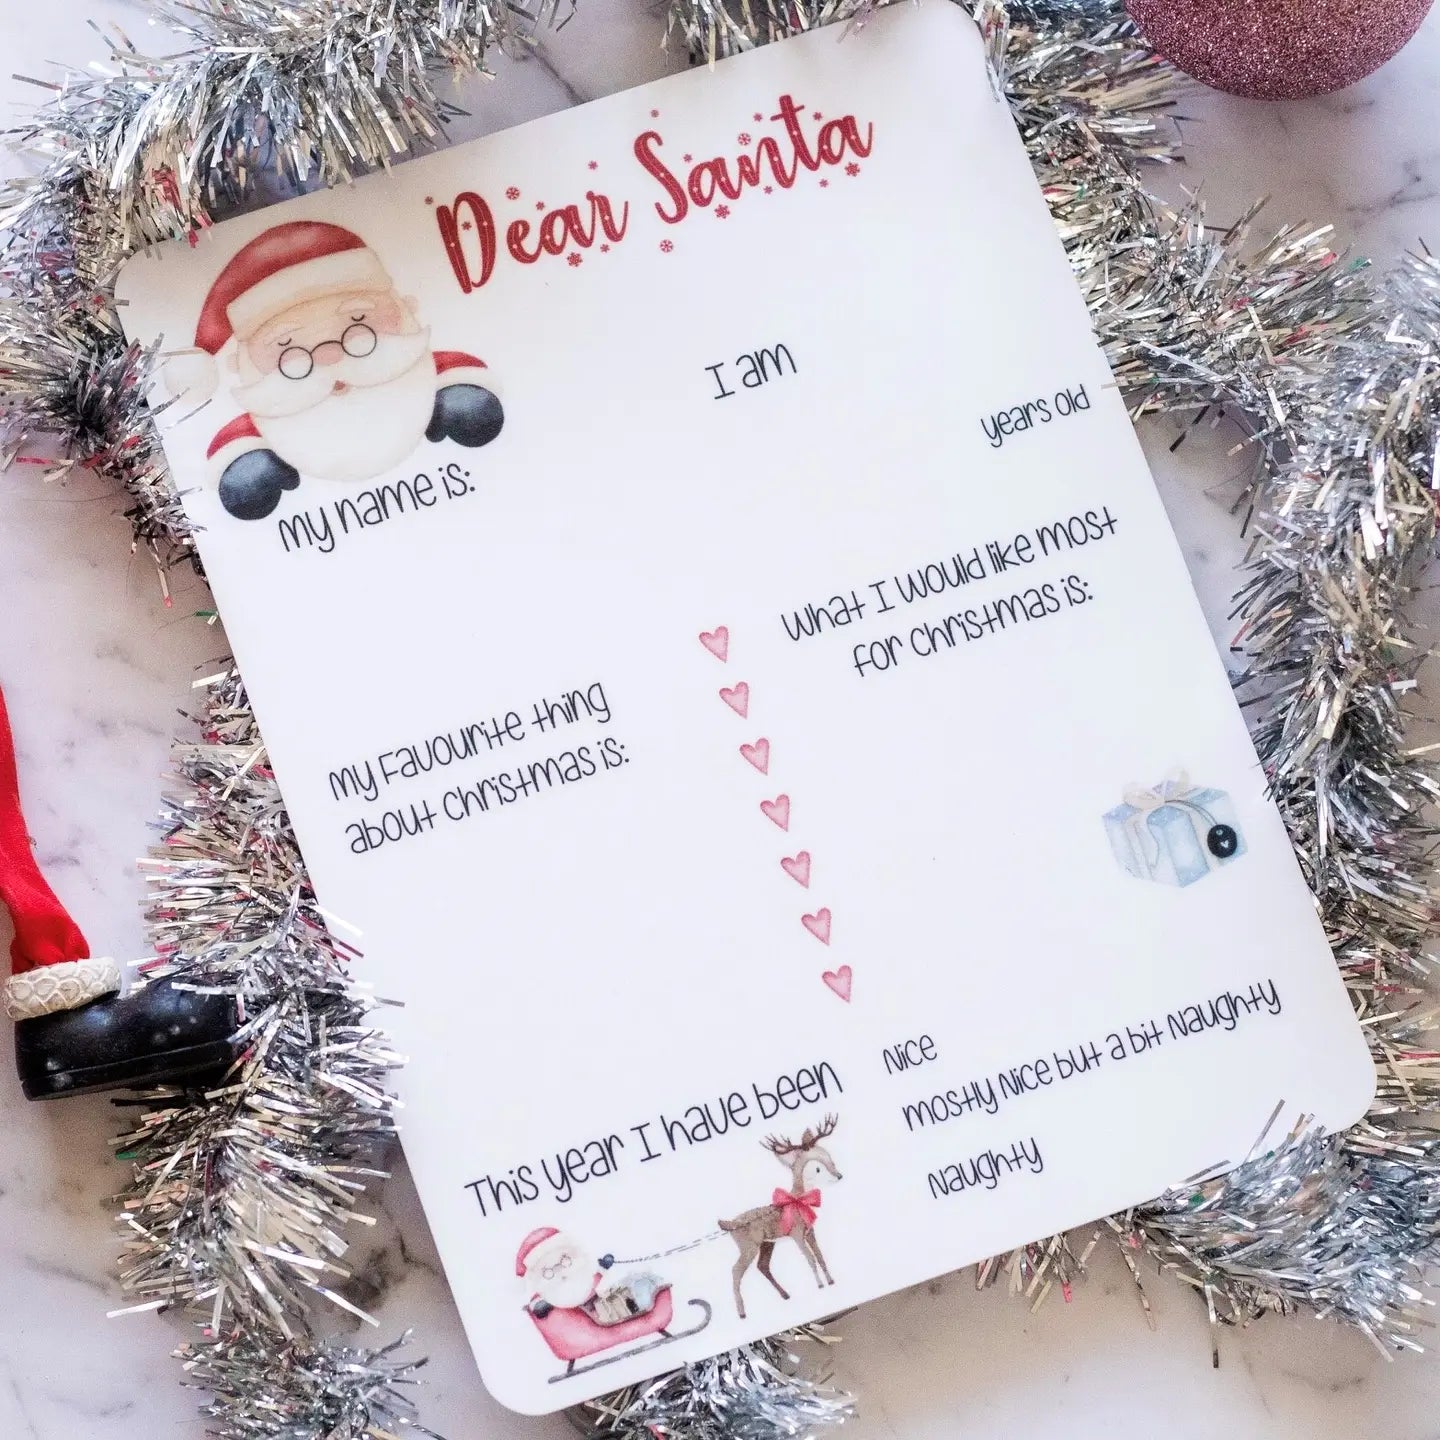 Dear Santa
I am
years old
My name is:
What I would like most
for Christmas is:
My Favourite thing
about Christmas is:
This year I have been
Nice
mostly Nice but a bit Naughty
Naughty